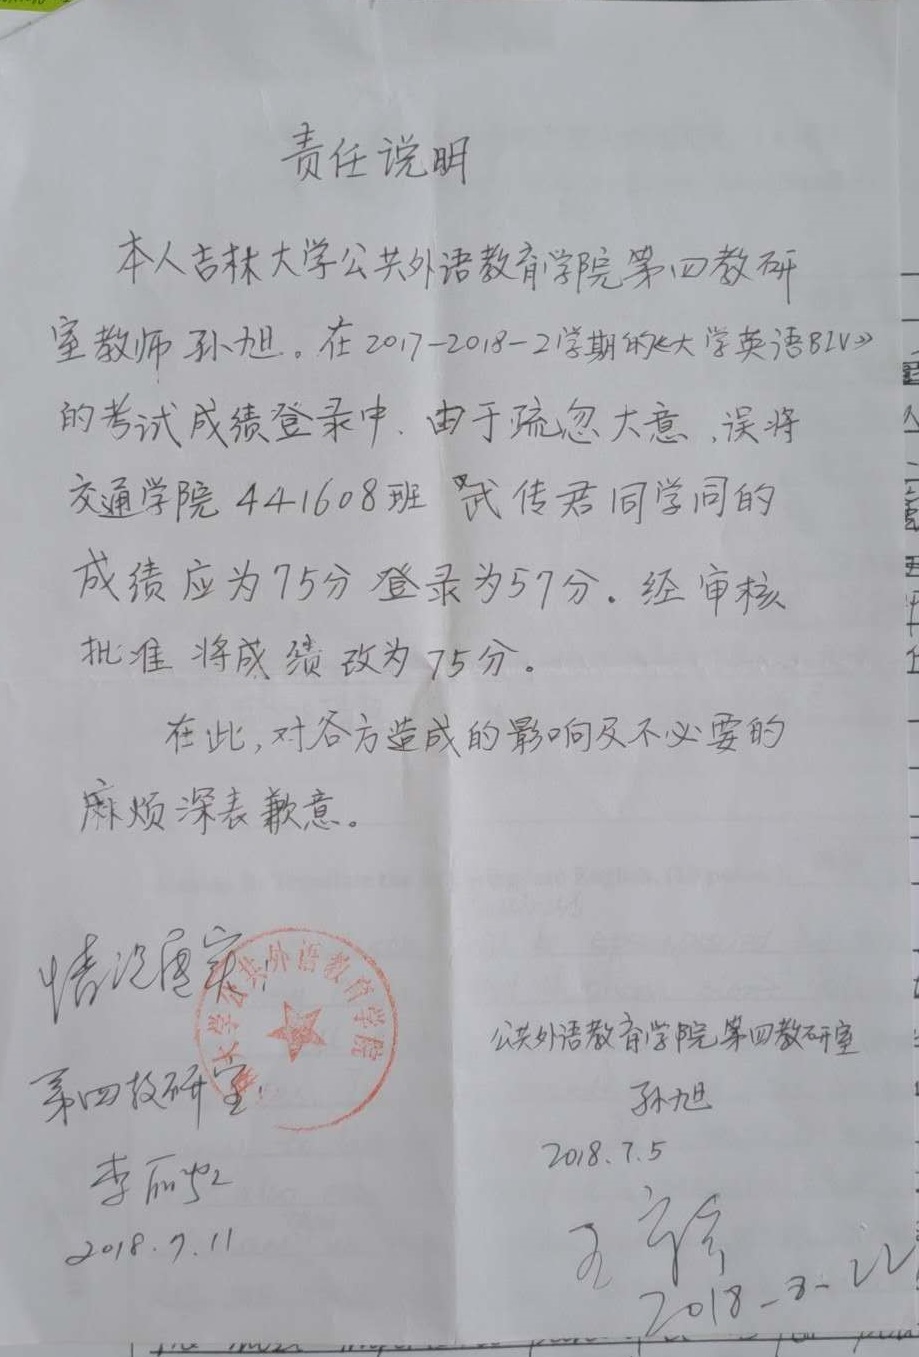 责任说明
本人吉林大学公共外语教育学院第四教研
室教师孙旭。在2017-2018-2学期的《大学英语BIV》
的考试成绩登录中,由于疏忽大意,误将
交通学院441608班 武传君同学同的
成绩应为75分登录为57分。经审核
批准将成绩改为75分。
在此,对各方造成的影响及不必要的
麻烦深表歉意。
情况属实
大学公共外语教育学院
第四教研室
2018.7.11
公共外语教育学院第四教研室
孙旭
2018.7.5
2018-8-22